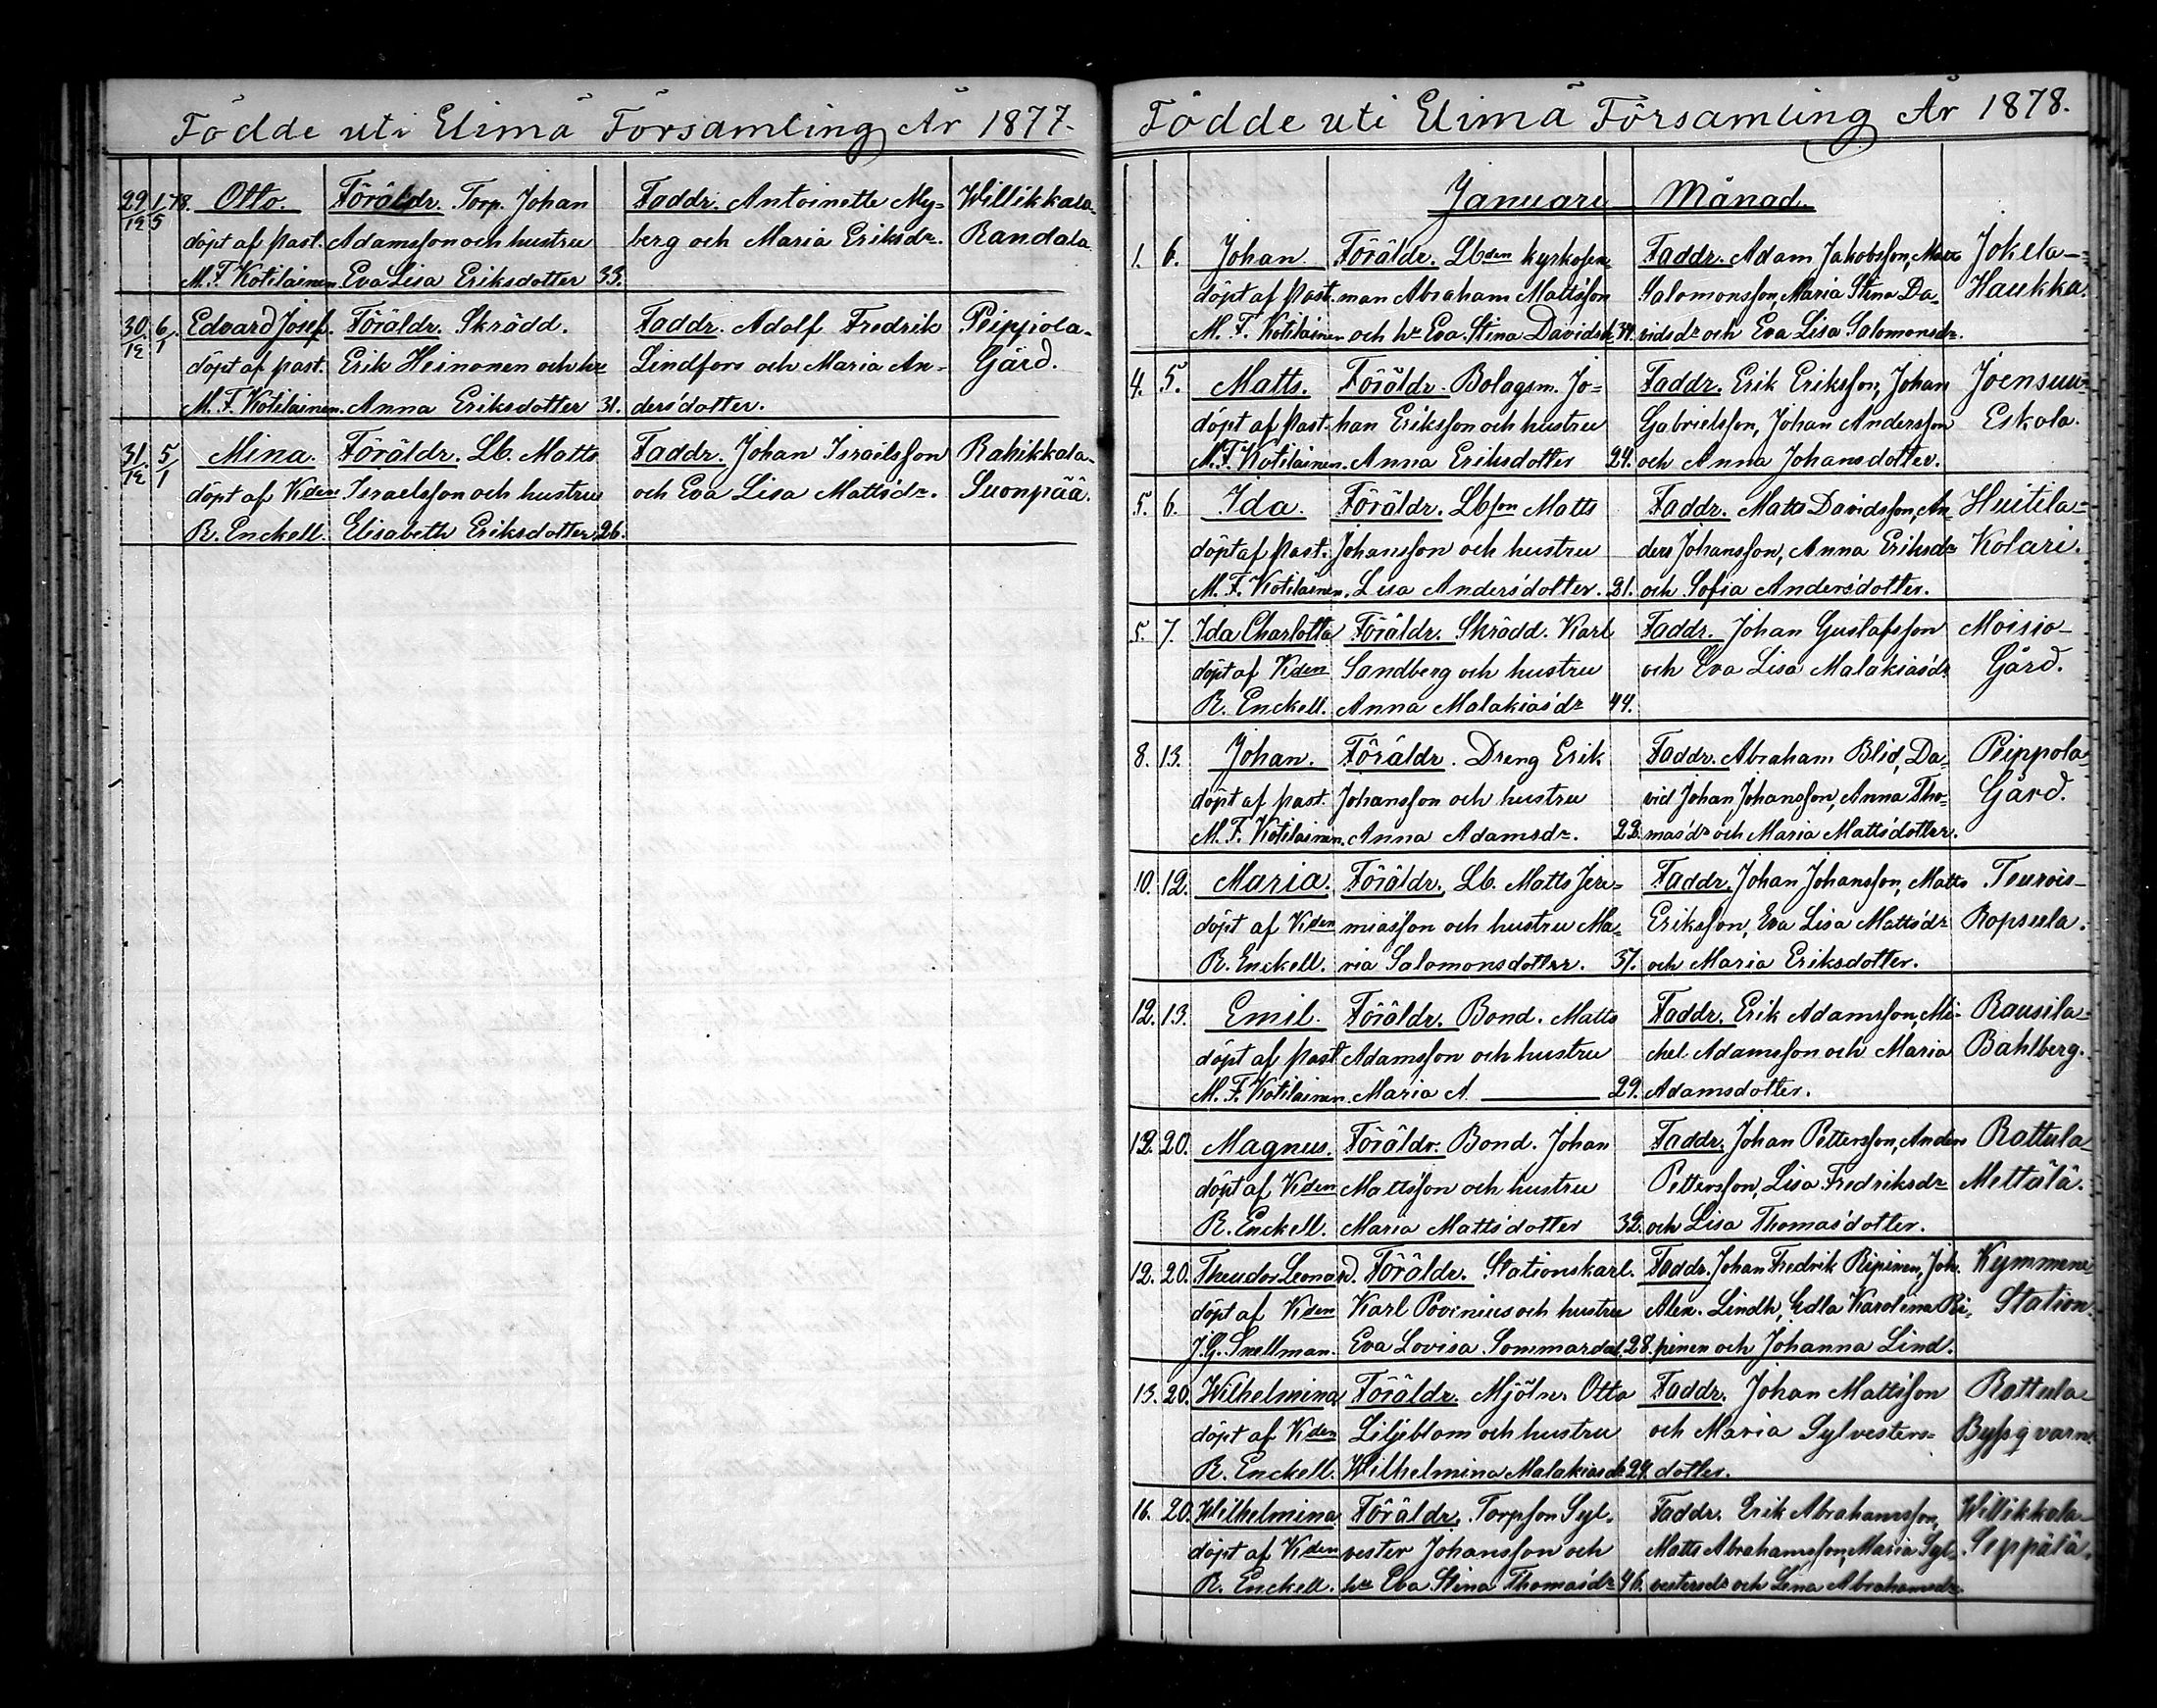 Födde uti Elimä Församling År 1877.
29/12 1/5 78. Otto. Föräldr. Torp. Johan Faddr. Antoinette My- Willikkala-
döpt af Past. Adamsson och hustru berg och Maria Eriksdr. Randala
M. F. Kotilainen. Eva Lisa Eriksdotter 33.
30/12 6/1 Edvard Josef. Föräldr. Skrädd. Faddr. Adolf Fredrik Peippola-
döpt af past. Erik Heinonen och hu Lindfors och Maria An- Gård.
M. F. Kotilainen. Anna Eriksdotter 31. dersdotter.
31/12 5/1 Mina. Föräldr. Lb. Matts Faddr. Johan Israelsson Rahikkala-
döpt af Kden Israelsson och hustru och Eva Lisa Mattsdr. Suonpää.
R. Enckell. Elisabeth Eriksdotter 26.
Födde uti Elimä Församling År 1878.
Januari Månad.
1. 6. Johan. Föräldr. Lbden kyrkofin- Faddr. Adam Jakobsson, Jokela-
döpt af Past. man Abraham Mattsson Salomonsson, Maria Stina Da- Haukka.
M. F. Kotilainen och hu Eva Stina Davidsdr 34. vidsdr och Eva Lisa Salomonsdr.
4. 5. Matts. Föräldr. Bolagsm. Jo- Faddr. Erik Eriksson, Johan Joensuu-
döpt af Past. han Eriksson och hustru Gabrielsson, Johan Andersson Eskola.
M. F. Kotilainen. Anna Eriksdotter 24. och Anna Johansdotter.
5. 6. Ida. Föräldr. Lbson Matts Faddr. Matts Davidsson, An- Huitila-
döpt af past. Johansson och hustru ders Johansson, Anna Eriksdr Kolari.
M. F. Kotilainen. Lisa Andersdotter. 21. och Sofia Andersdotter.
5. 7. Ida Charlotta Föräldr. Skrädd. Karl Faddr. Johan Gustafsson Moisio-
döpt af Kden Sandberg och hustru och Eva Lisa Malakiasdr Gård.
R. Enckell. Anna Malakiasdr 44.
8. 13. Johan. Föräldr. Dreng Erik Faddr. Abraham Blid, Da- Peippola-
döpt af past. Johansson och hustru vid Johan Johansson, Anna Tho- Gård.
M. F. Kotilainen. Anna Adamsdr. 22. masdr och Maria Mattsdotter.
10. 12. Maria. Föräldr. Lb. Matts Jere- Faddr. Johan Johansson, Matts Teurois-
döpt af Kden miasson och hustru Ma- Eriksson, Eva Lisa Mattsdr Ropsula.
R. Enckell. ria Salomonsdotter. 37. och Maria Eriksdotter.
12. 13. Emil. Föräldr. Bond. Matts Faddr. Erik Adamsson, Mi- Rausila-
döpt af Past. Adamsson och hustru chel Adamsson och Maria Bahlberg.
M. F. Kotilainen. Maria A 29. Adamsdotter.
12. 20. Magnus. Föräldr. Bond. Johan Faddr. Johan Pettersson, Anders Rattula-
döpt af Kden Mattsson och hustru Pettersson, Lisa Fredriksdr Mettälä.
R. Enckell. Maria Mattsdotter 32. och Lisa Thomasdotter.
12. 20. Theudor Leonard. Föräldr. Stationskarl. Faddr. Johan Fredrik Ripinen, Joh. Kymmene
döpt af Kden Karl Povenius och hustru Alex. Lindh, Edla Karolina Ri- Station.
J. G. Snellman. Eva Lovisa Sommardal. 28. pinen och Johanna Lind.
13. 20. Wilhelmina Föräldr. Mjöln. Otto Faddr. Johan Mattsson Rattula-
döpt af Kden Liljeblom och hustru och Maria Sylvesters- Bysqvarn.
R. Enckell. Wilhelmina Malakiasdr 24. dotter.
16. 20. Wilhelmina Föräldr. Torpson Syl- Faddr. Erik Abrahamsson, Willikkala-
döpt af Kden vester Johansson och Matts Abrahamsson, Maria Syl- Seppälä.
R. Enckell. hu Eva Stina Thomasdr 46. vestersdr och Lena Abrahamsdr.